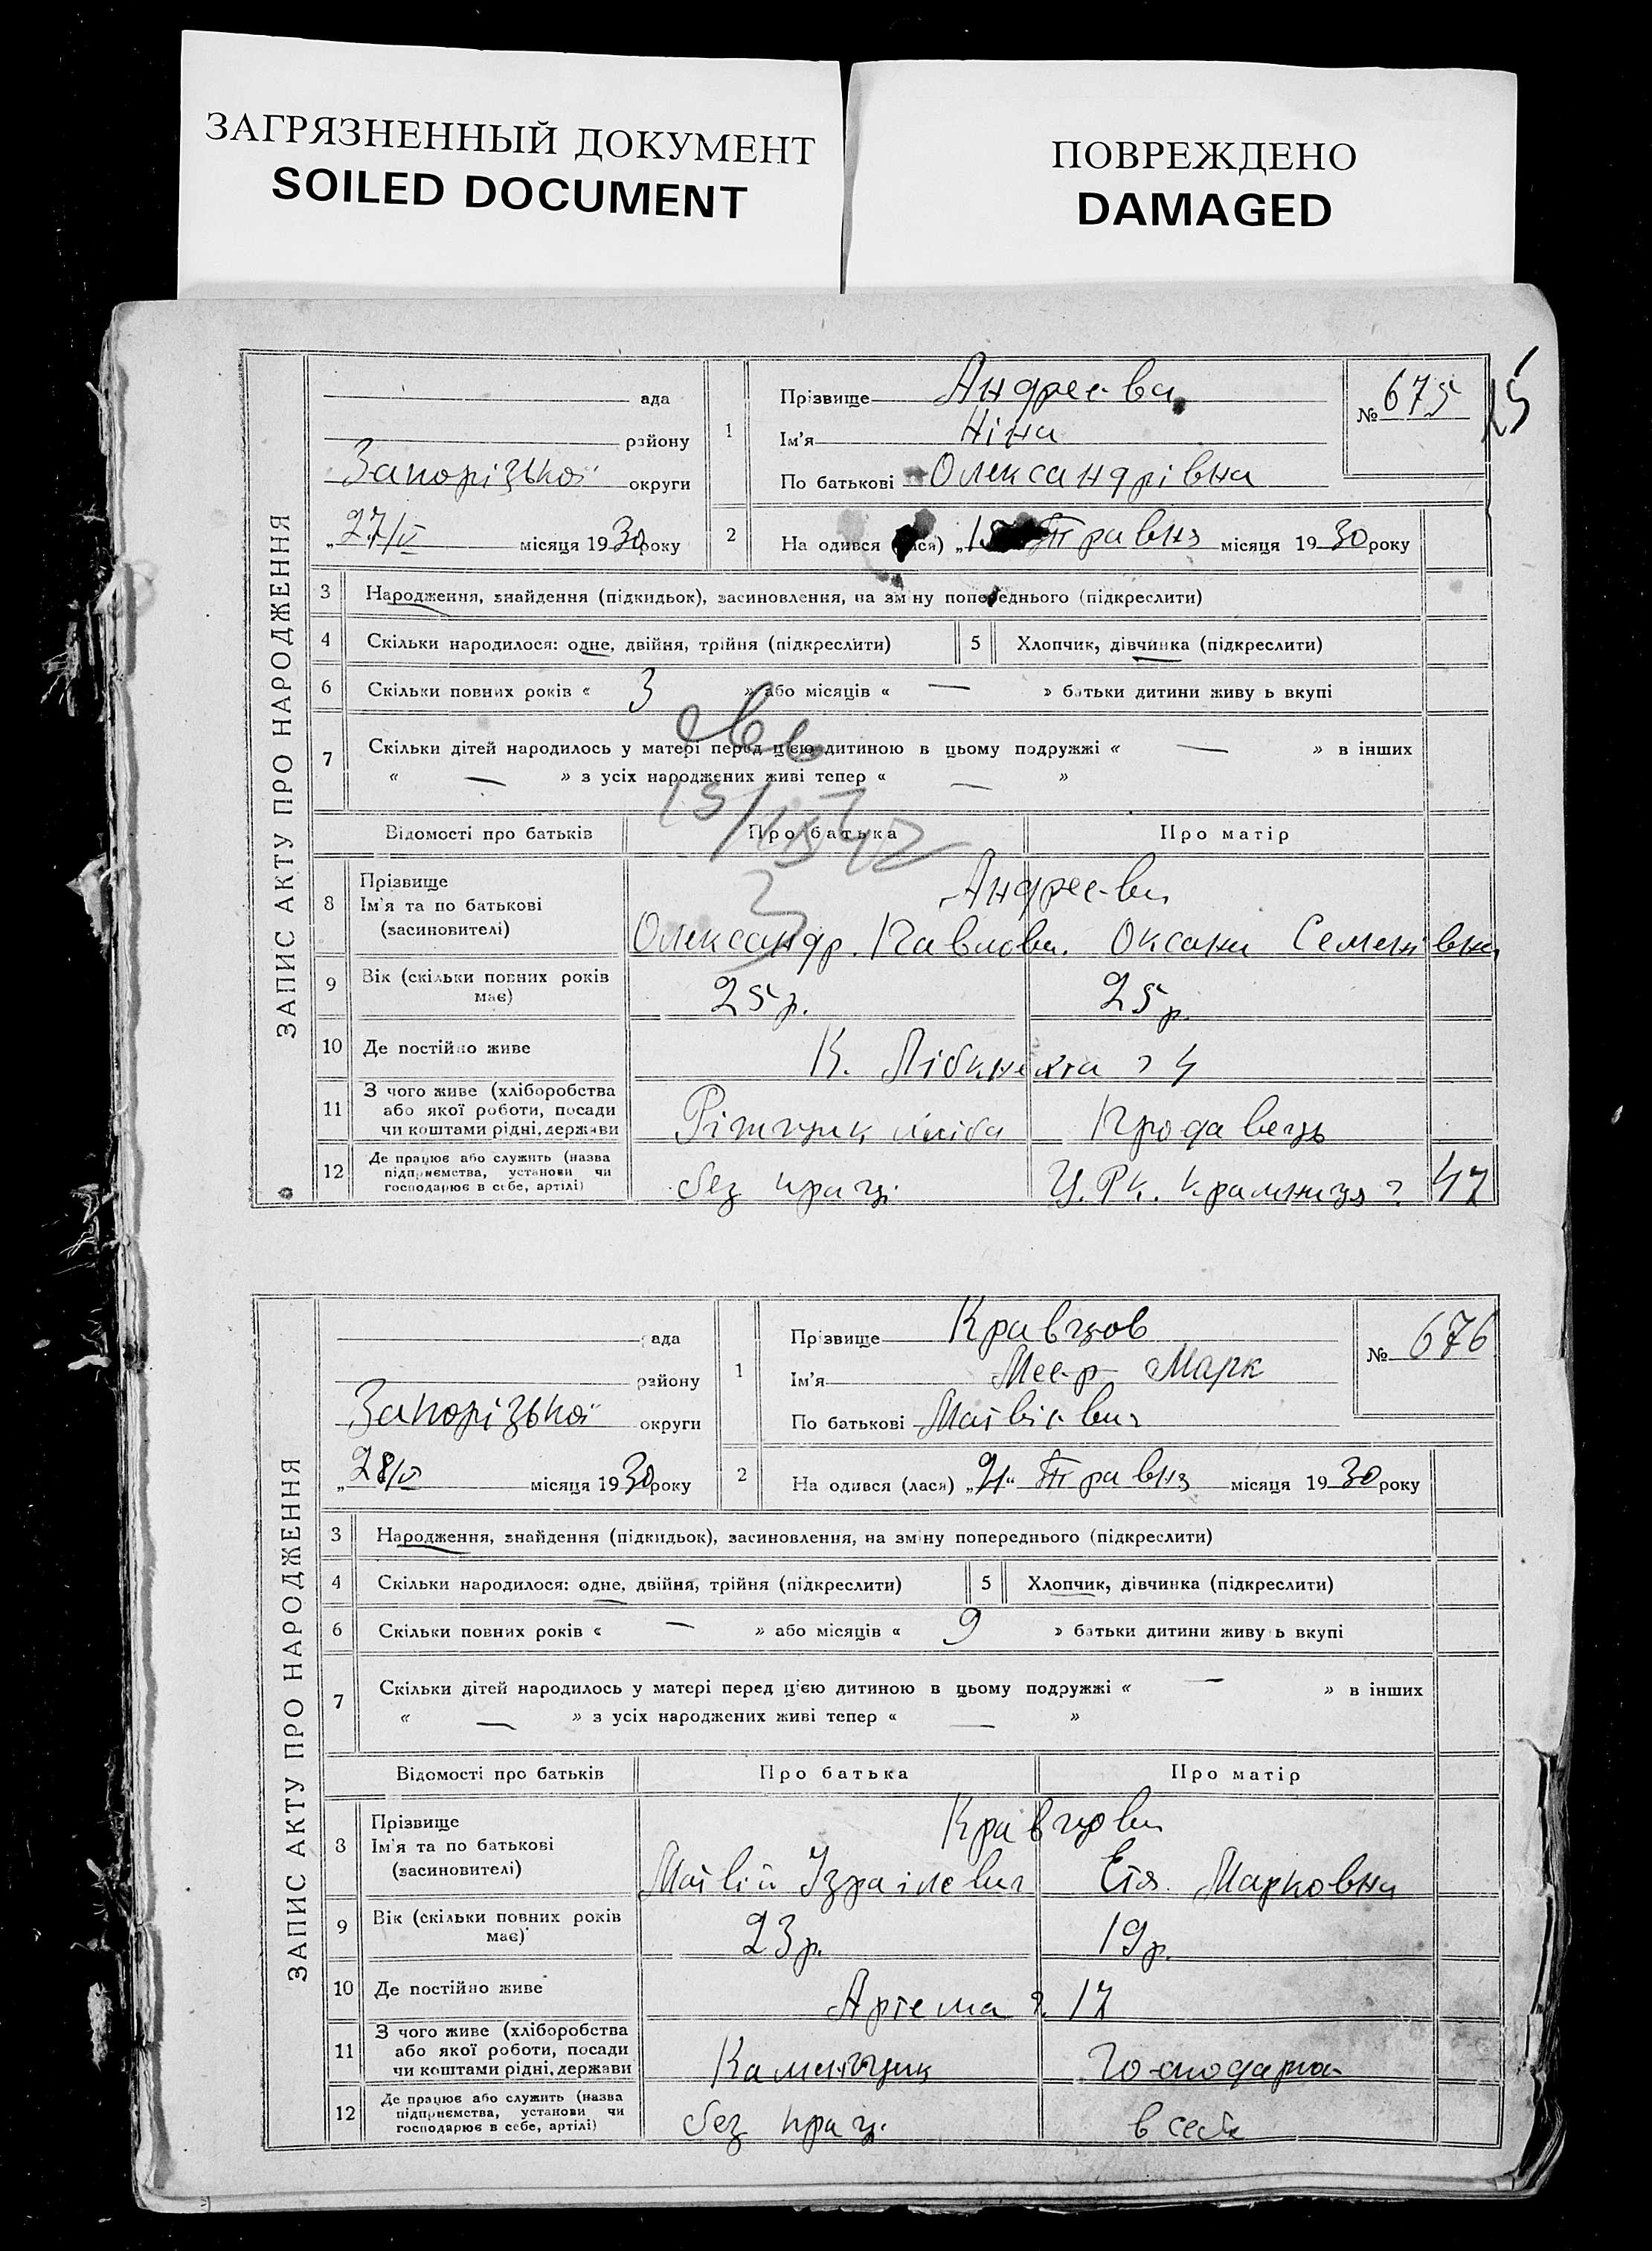 ЗАГРЯЗНЕННЫЙ ДОКУМЕНТ
SOILED DOCUMENT
ПОВРЕЖДЕНО
DAMAGED
ЗАПИС АКТУ ПРО НАРОДЖЕННЯ
ада
району
Запорізької округи
„27/V місяця 1930 року
1
Прізвище Андреєва
Ім'я Ніна
По батькові Олександрівна
№ 675
15
2
На одився (лася) „ Травня місяця 1930 року
3 Народження, знайдення (підкидьок), засиновлення, на зміну попереднього (підкреслити)
4 Скільки народилося: одне, двійня, трійня (підкреслити)
5 Хлопчик, дівчинка (підкреслити)
6 Скільки повних років « 3 » або місяців « — » батьки дитини живу ь вкупі
7 Скільки дітей народилось у матері перед цією дитиною в цьому подружжі « — » в інших
« — » з усіх народжених живі тепер « — »
Відомості про батьків Про батька Про матір
8 Прізвище
Ім'я та по батькові
(засиновителі)
Андреєви
Олександр Павлови. Оксана Семенівна
9 Вік (скільки повних років має) 25 р. 25 р.
10 Де постійно живе К. Лібкнехта 4
11 З чого живе (хліборобства
або якої роботи, посади
чи коштами рідні, держави
хліба Продавець
12 Де працює або служить (назва
підприємства, установи чи
господарює в себе, артілі)
без праці Ц.Р.К. крамниця 47
ЗАПИС АКТУ ПРО НАРОДЖЕННЯ
ада
району
Запорізької округи
„28/V місяця 1930 року
1
Прізвище Кравцов
Ім'я Меєр Марк
По батькові Матвієвич
№ 676
2
На одився (лася) „21“ Травня місяця 1930 року
3 Народження, знайдення (підкидьок), засиновлення, на зміну попереднього (підкреслити)
4 Скільки народилося: одне, двійня, трійня (підкреслити)
5 Хлопчик, дівчинка (підкреслити)
6 Скільки повних років « — » або місяців « 9 » батьки дитини живу ь вкупі
7 Скільки дітей народилось у матері перед цією дитиною в цьому подружжі « — » в інших
« — » з усіх народжених живі тепер « — »
Відомості про батьків Про батька Про матір
8 Прізвище
Ім'я та по батькові
(засиновителі)
Кравцови
Матвій Ізраілевич Етя Марковна
9 Вік (скільки повних років має) 23 р. 19 р.
10 Де постійно живе Артема 17
11 З чого живе (хліборобства
або якої роботи, посади
чи коштами рідні, держави
Каменщик Господарка
12 Де працює або служить (назва
підприємства, установи чи
господарює в себе, артілі)
без праці в себе